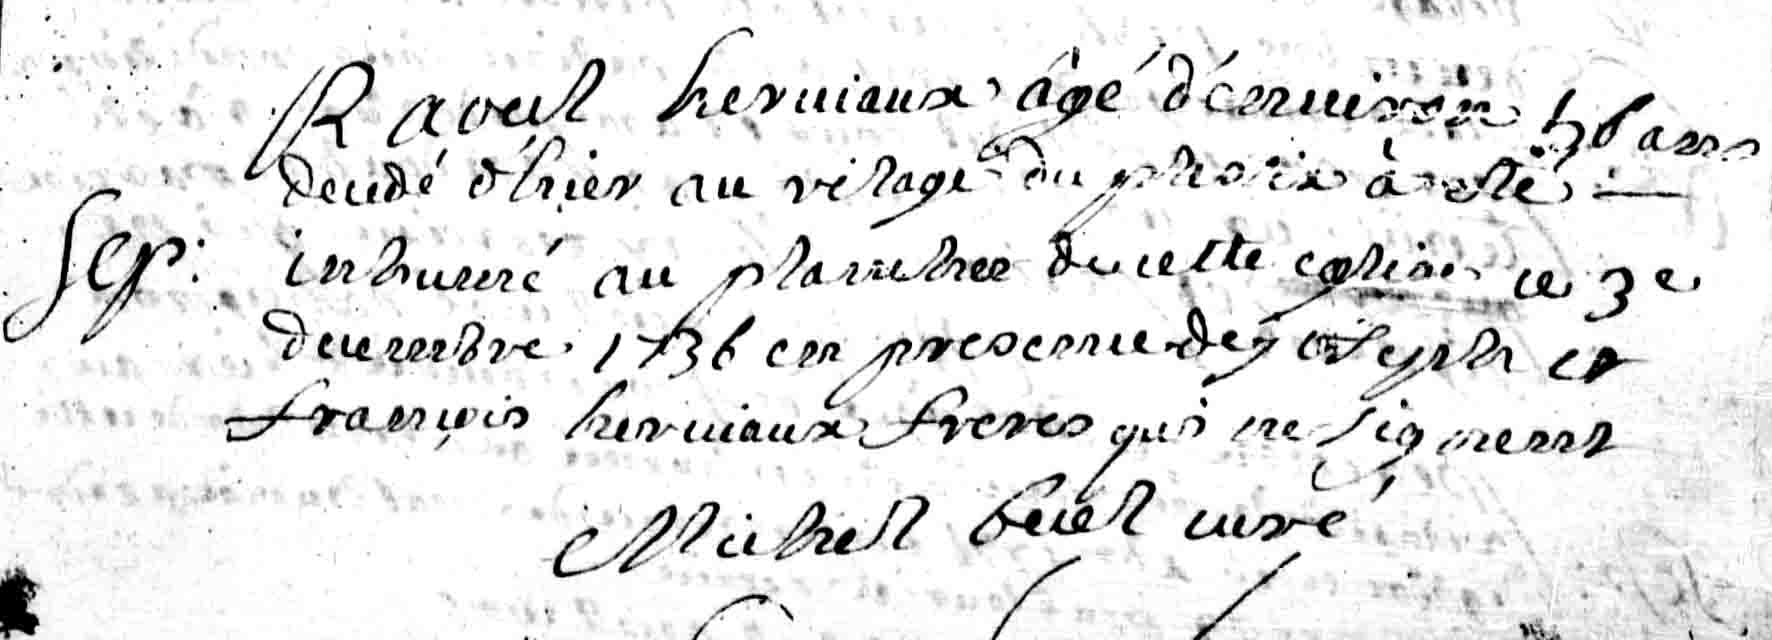 Raoul herviaux âgé d'environ 56 ans
decedé d'hier au vilage du plessix à esté
Sep: inhumé au placitre de cette eglise ce 3e
decembre 1736 en presence de joseph et
françois herviaux freres qui ne signent
Michel curé